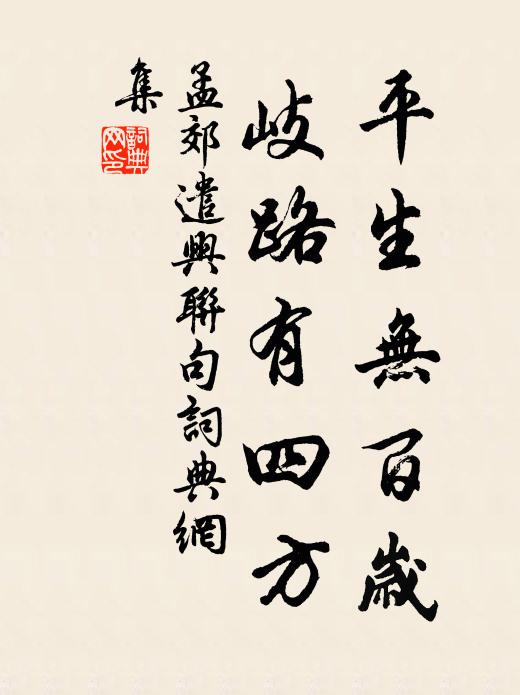 平生無百歲
岐路有四方
孟郊遣興聯句詞典網
集
詞典
网印